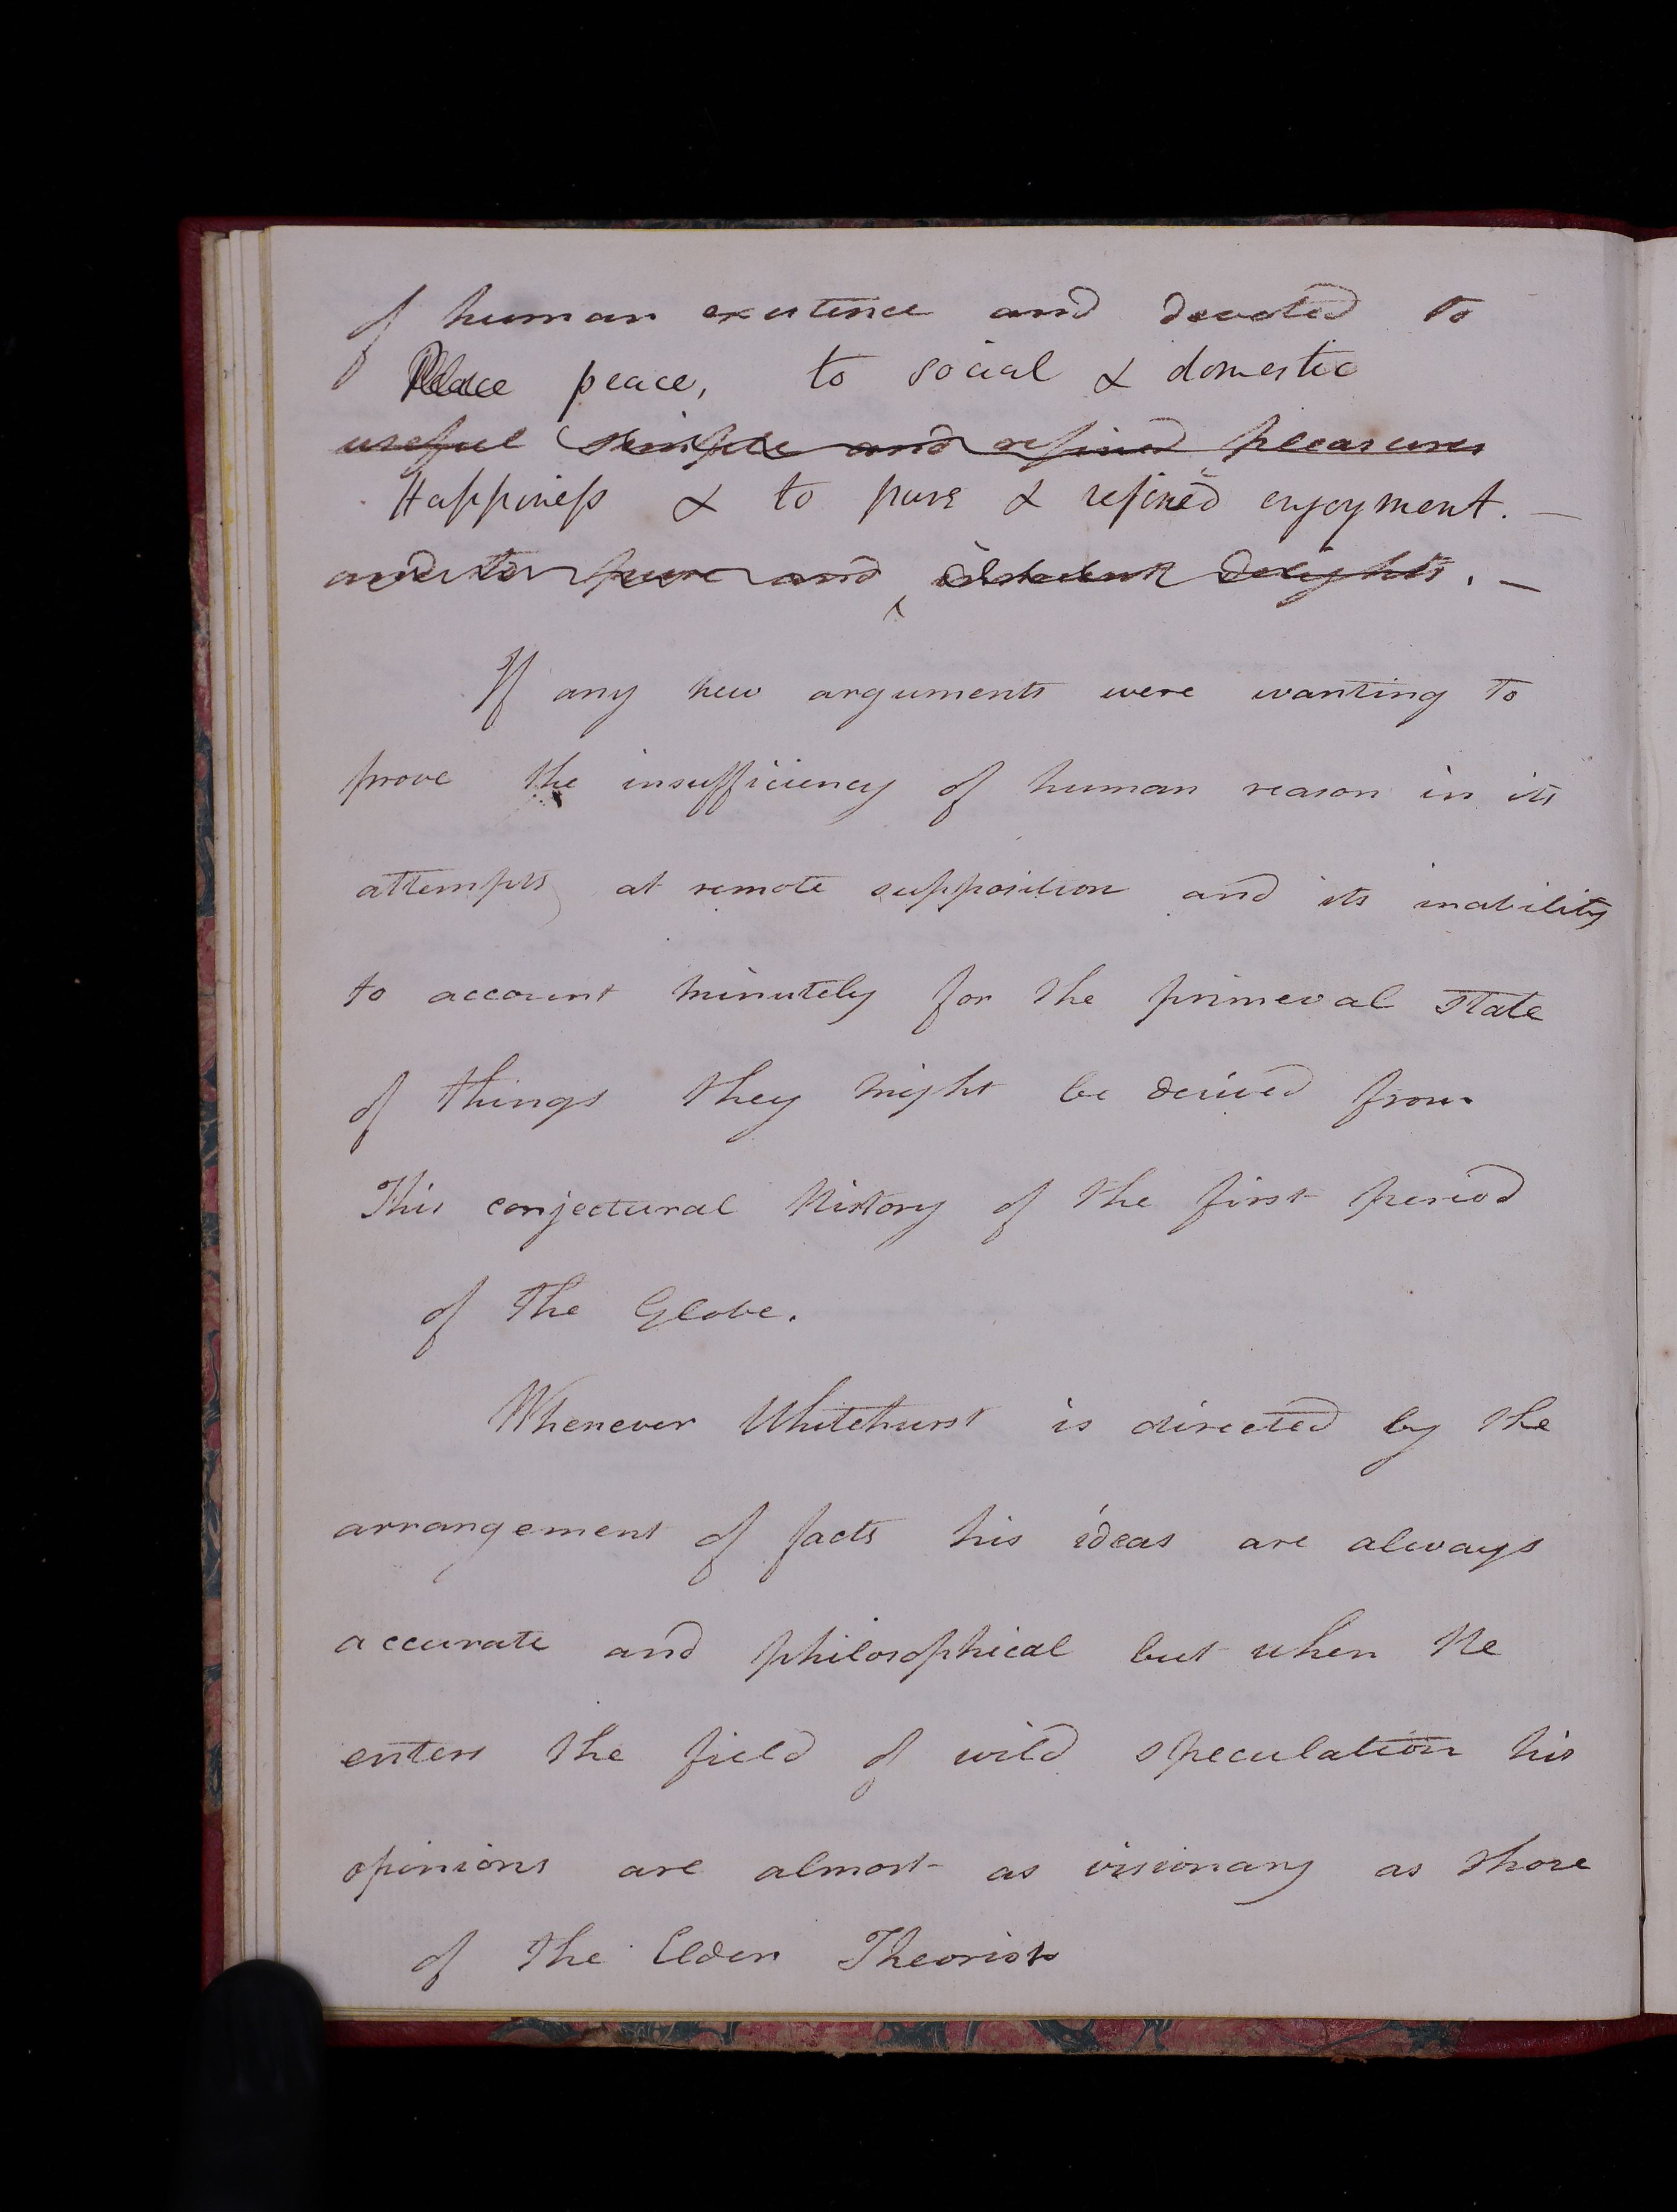 of human existence and devoted to
peace, to social & domestic
useful simple and refined pleasures
Happiness & to pure & refined enjoyment. —
and to pure and delights. —
If any new arguments were wanting to
prove the insufficiency of human reason in its
attempts at remote supposition and its inability
to account minutely for the primeval state
of things they might be derived from
This conjectural History of the first period
of the Globe.
Whenever Whitehurst is directed by the
arrangement of facts his ideas are always
accurate and philosophical but when He
enters the field of wild speculation his
opinions are almost as visionary as those
of the Elder Theorists